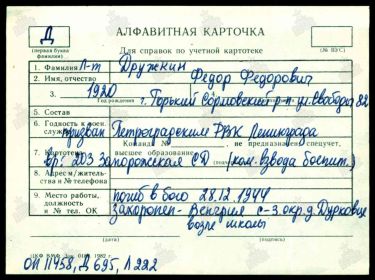 Д
АЛФАВИТНАЯ КАРТОЧКА
(первая буква фамилии)
Для справок по учетной картотеке
(№ ВУС)
1. Фамилия Л-т Дружкин
2. Имя, отчество Федор Федорович
3. 1920 г. Горький Сормовский р-н ул. Свободы 82
Год рождения
5. Состав
6. Годность к воен. службе призван Петроградским РВК Ленинграда
7. Категория вр. 203 Запорожская СД (ком. взвода)
высшее образование
не предназначен спецучет,
8. Адрес м/жительства и № телефона
9. Место работы, должность и № тел. ОК погиб в бою 28.12.1944
Захоронен - Венгрия с-з. окр. д. возле школы
(дата)
(подпись)
1982 г.
ОП 11458, Д 695, Л 222